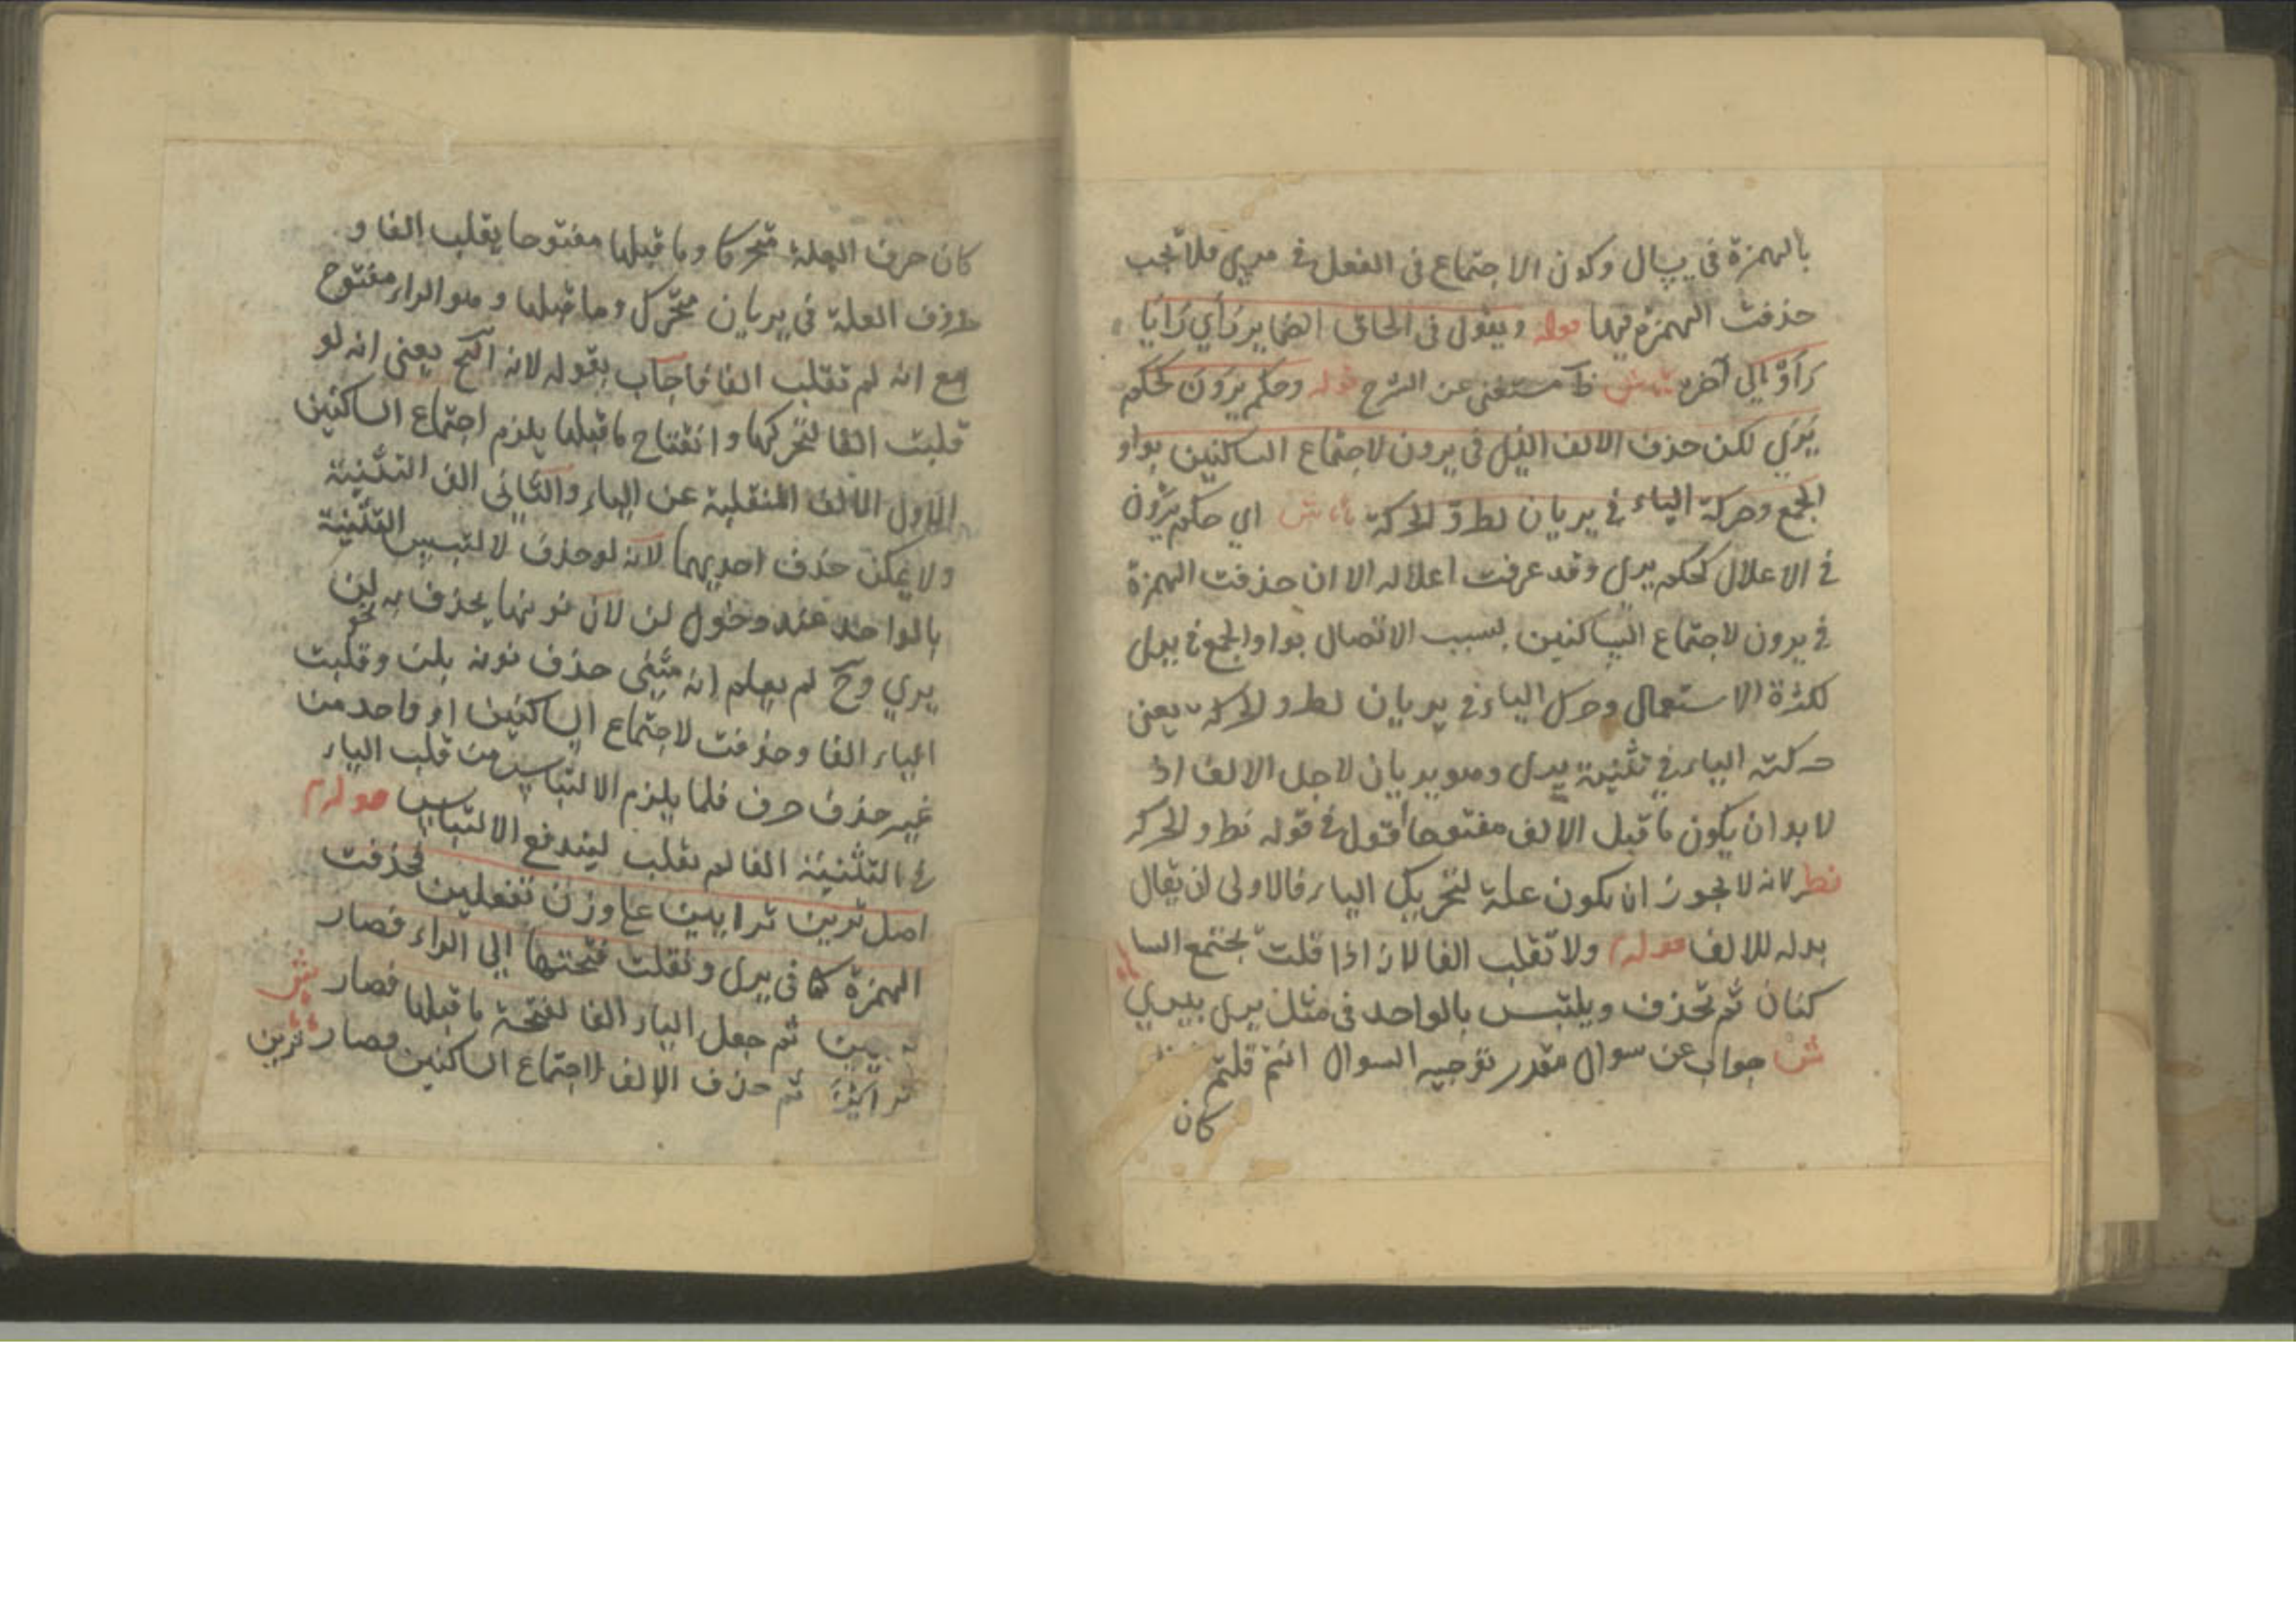 بالهمزة في يسال وكون الاجتماع في الفعل في يري فلا تجب
حذفت الهمزة فيها قوله ويقول في الحاق الضماير رَأَي رَأَيَا
رَأَوْ الي آخره ش ظ مستغنى عن الشرح قوله وحكم يَرَوْن كحكم
يَرَي لكن حذف الالف الذي في يرون لاجتماع الساكنين بواو
الجمع وحركة الياء في يريان لطروّ الحركة ش اي حكم يرون
في الاعلال كحكم يري وقد عرفت اعلاله الا ان حذفت الهمزة
في يرون لاجتماع الساكنين بسبب الاتصال بواو الجمع في يري
لكثرة الاستعمال وحرك الياء في يريان لطرو الحركة يعني
حركة الياء في تثنية يري وهو يريان لاجل الالف اذ
لا بد ان يكون ما قبل الالف مفتوحا اقول في قوله لطرو الحركة
نظر لانه لا يجوز ان يكون علة لتحريك الياء فالاولى ان يقال
بدله للالف قوله ولا تقلب الفا لانه اذا قلبت يجتمع السا
كنان ثم تحذف ويلتبس بالواحد في مثل يري
ش جواب عن سوال مقدر توجيه السوال انتم قلتم
كان
كان حرف العلة متحركا وما قبلها مفتوحا يقلب الفا و
حرف العلة في يريان متحرك وما قبلها وهو الراء مفتوح
مع انه لم تقلب الفا فاجاب بقوله لانه الخ يعني انه لو
قلبت الفا لتحركها وانفتاح ما قبلها يلزم اجتماع الساكنين
الاول الالف المنقلبة عن الياء والثاني الف التثنية
ولا يمكن حذف احديهما لانه لو حذف لالتبس التثنية
بالواحد عند دخول لن لان نونها يحذف به نحو لن
يري وح لم يعلم انه مثنى حذف نونه بلن وقلبت
الياء الفا وحذفت لاجتماع الساكنين او واحد من
غير حذف حرف فلما يلزم الالتباس من قلب الياء
في التثنية الفا لم تقلب ليندفع الالتباس قوله
اصل ترين ترايين على وزن تفعلين فحذفت
الهمزة كما في يري ونقلت فتحتها الي الراء فصار
تريين ثم جعل الياء الفا لفتحة ما قبلها فصار
ثم حذف الالف لاجتماع الساكنين فصار ترين
ش